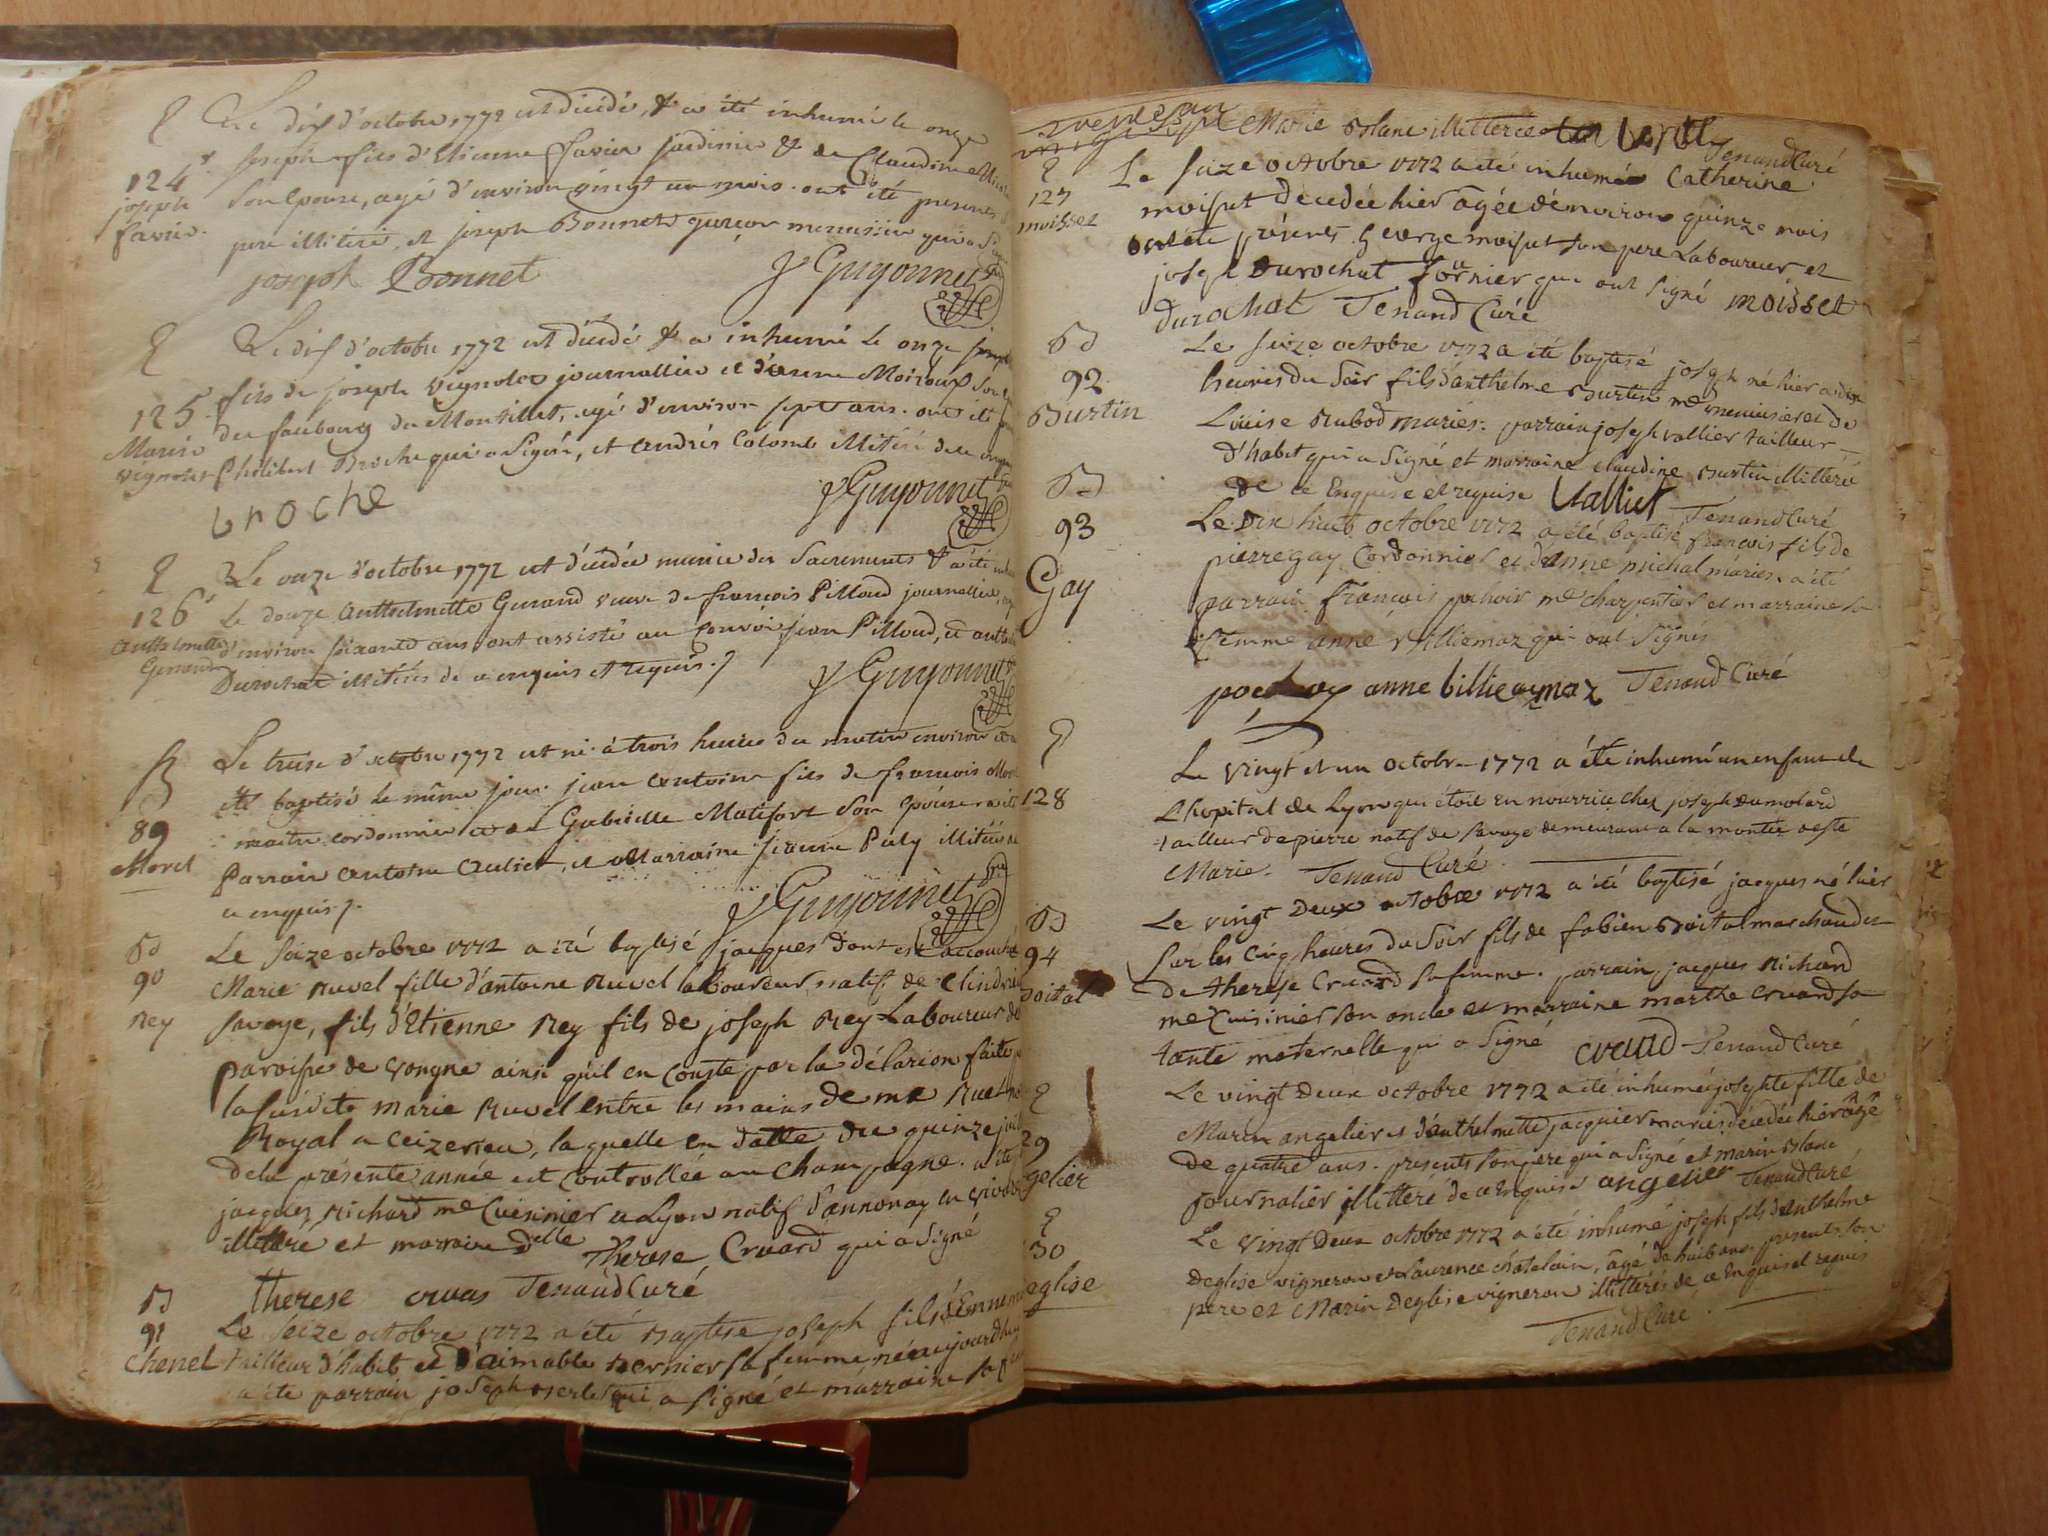 Le dix d'octobre 1772 est décédé, & a été inhumé le onze
124e
joseph fils d'Etienne favier jardinier & de Claudine
joseph
son épouse, agé d'environ vingt un mois. ont été présens
favier.
pere illitéré, et joseph Bonnet garçon menuisier qui a
joseph Bonnet
Guyonnet
Le dix d'octobre 1772 est décédé & a inhumé le onze
125
fils de joseph vignolet journallier et d'anne Moiroux son
Marie
du faubourg du Montillet, agé d'environ sept ans. ont été
vignolet
Philibert Broche qui a signé, et andrés Colomb illitéré de ce enquis
broche
Guyonnet
Le onze d'octobre 1772 est décédée munie des Sacrements & a été
126e
le douze Anthelmette Gurand veuve de françois Pilloud journallier
Anthelmette
d'environ soixante ans ont assisté au convoi jean Pilloud, et
Durochat illitérés de ce enquis et requis.
Guyonnet
Le treize d'octobre 1772 est né à trois heures du matin environ et a
été baptisé le même jour jean antoine fils de françois
89
maitre cordonnier et de Gabrielle Matifort son épouse
Morel
Parrain antoine aulier, et Marraine jeanne Puly illitérés de
ce enquis.
Guyonnet
90
Le seize octobre 1772 a été baptisé jacques dont est accouchée
Rey
Marie Ruvel fille d'antoine Ruvel laboureur natif de
savoye, fils d'Etienne Rey fils de joseph Rey Laboureur de
paroisse de vongne ainsi qu'il en conste par la délarion faite
la susdite Marie Ruvel entre les mains de me
Royal a Ceizerieu, la quelle en datte du quinze
de la présente année est controllée au champagne. a été
jacques Richard me Cuisinier a Lyon natif d'annonay en
illitéré et marraine delle Therese Cruard qui a signé
therese cruas Tenand Curé
91
Le seize octobre 1772 a été Baptisé joseph fils
Chenel
tailleur d'habits et d'aimable Bernier sa femme né aujourdhuy
a été parrain joseph qui a signé et marraine
Marie Blanc illitterée
Tenand Curé
127
Le seize octobre 1772 a été inhumée Catherine
moisset
moisset decedée hier agée d'environ quinze mois
ont été présens George moisset son pere Laboureur et
joseph Durochat fournier qui ont signé moisset
durochat Tenand Curé
92
Le seize octobre 1772 a été baptisé joseph né hier a dix
Burtin
heures du soir fils d'anthelme Burtin me menuisier et de
Louise Rubod mariés. parrain joseph vallier tailleur
d'habit qui a signé et marraine claudine Burtin illitteré
de ce Enquise et requise Vallier Tenand Curé
93
Le dix huit octobre 1772 a été baptisé françois fils de
Gay
pierre gay Cordonnier et d'anne michal mariés. a été
parrain françois pochoir me charpentier et marraine sa
femme anne villiemaz qui ont signés
pochoy anne billiemaz Tenand Curé
Le vingt et un octobre 1772 a été inhumé un enfant de
128
L'hopital de Lyon qui étoit en nourrice chez joseph Dumolard
tailleur de pierre natif de savoye demeurant a la montée
Marie. Tenand Curé
Le vingt Deux octobre 1772 a été baptisé jacques né hier
94
sur les cinq heures du soir fils de fabien Doital marchand et
Doital
de therese Cruard sa femme. parrain jacques Richard
me Cuisinier son oncle et marraine marthe cruard sa
tante maternelle qui a signé cruard Tenand Curé
Le vingt Deux octobre 1772 a été inhumée josephte fille de
29
Marin angelier et d'anthelmette jacquier mariés, décédée hier agée
gelier
de quatre ans. presents son pere qui a signé et marin Blanc
journalier illitteré de ce Enquis angelier Tenand Curé
30
Le vingt Deux octobre 1772 a été inhumé joseph fils d'anthelme
eglise
Deglise vigneron et Laurence châtelain, agé de huit ans. presents son
pere et Marin Deglise vigneron illitterés de ce Enquis et requis
Tenand Curé